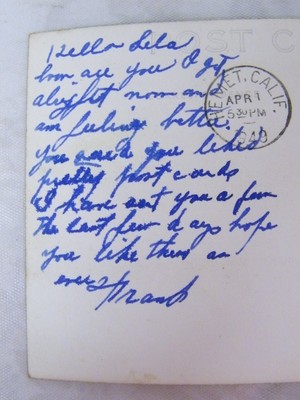 POST C
Hello Lela
how are you I got
alright now and
am feeling better.
you said you liked
pretty post cards
I have sent you a few
the last few days hope
you like them an
ever Frank
HEMET, CALIF.
APR 1
5 30 PM
1940